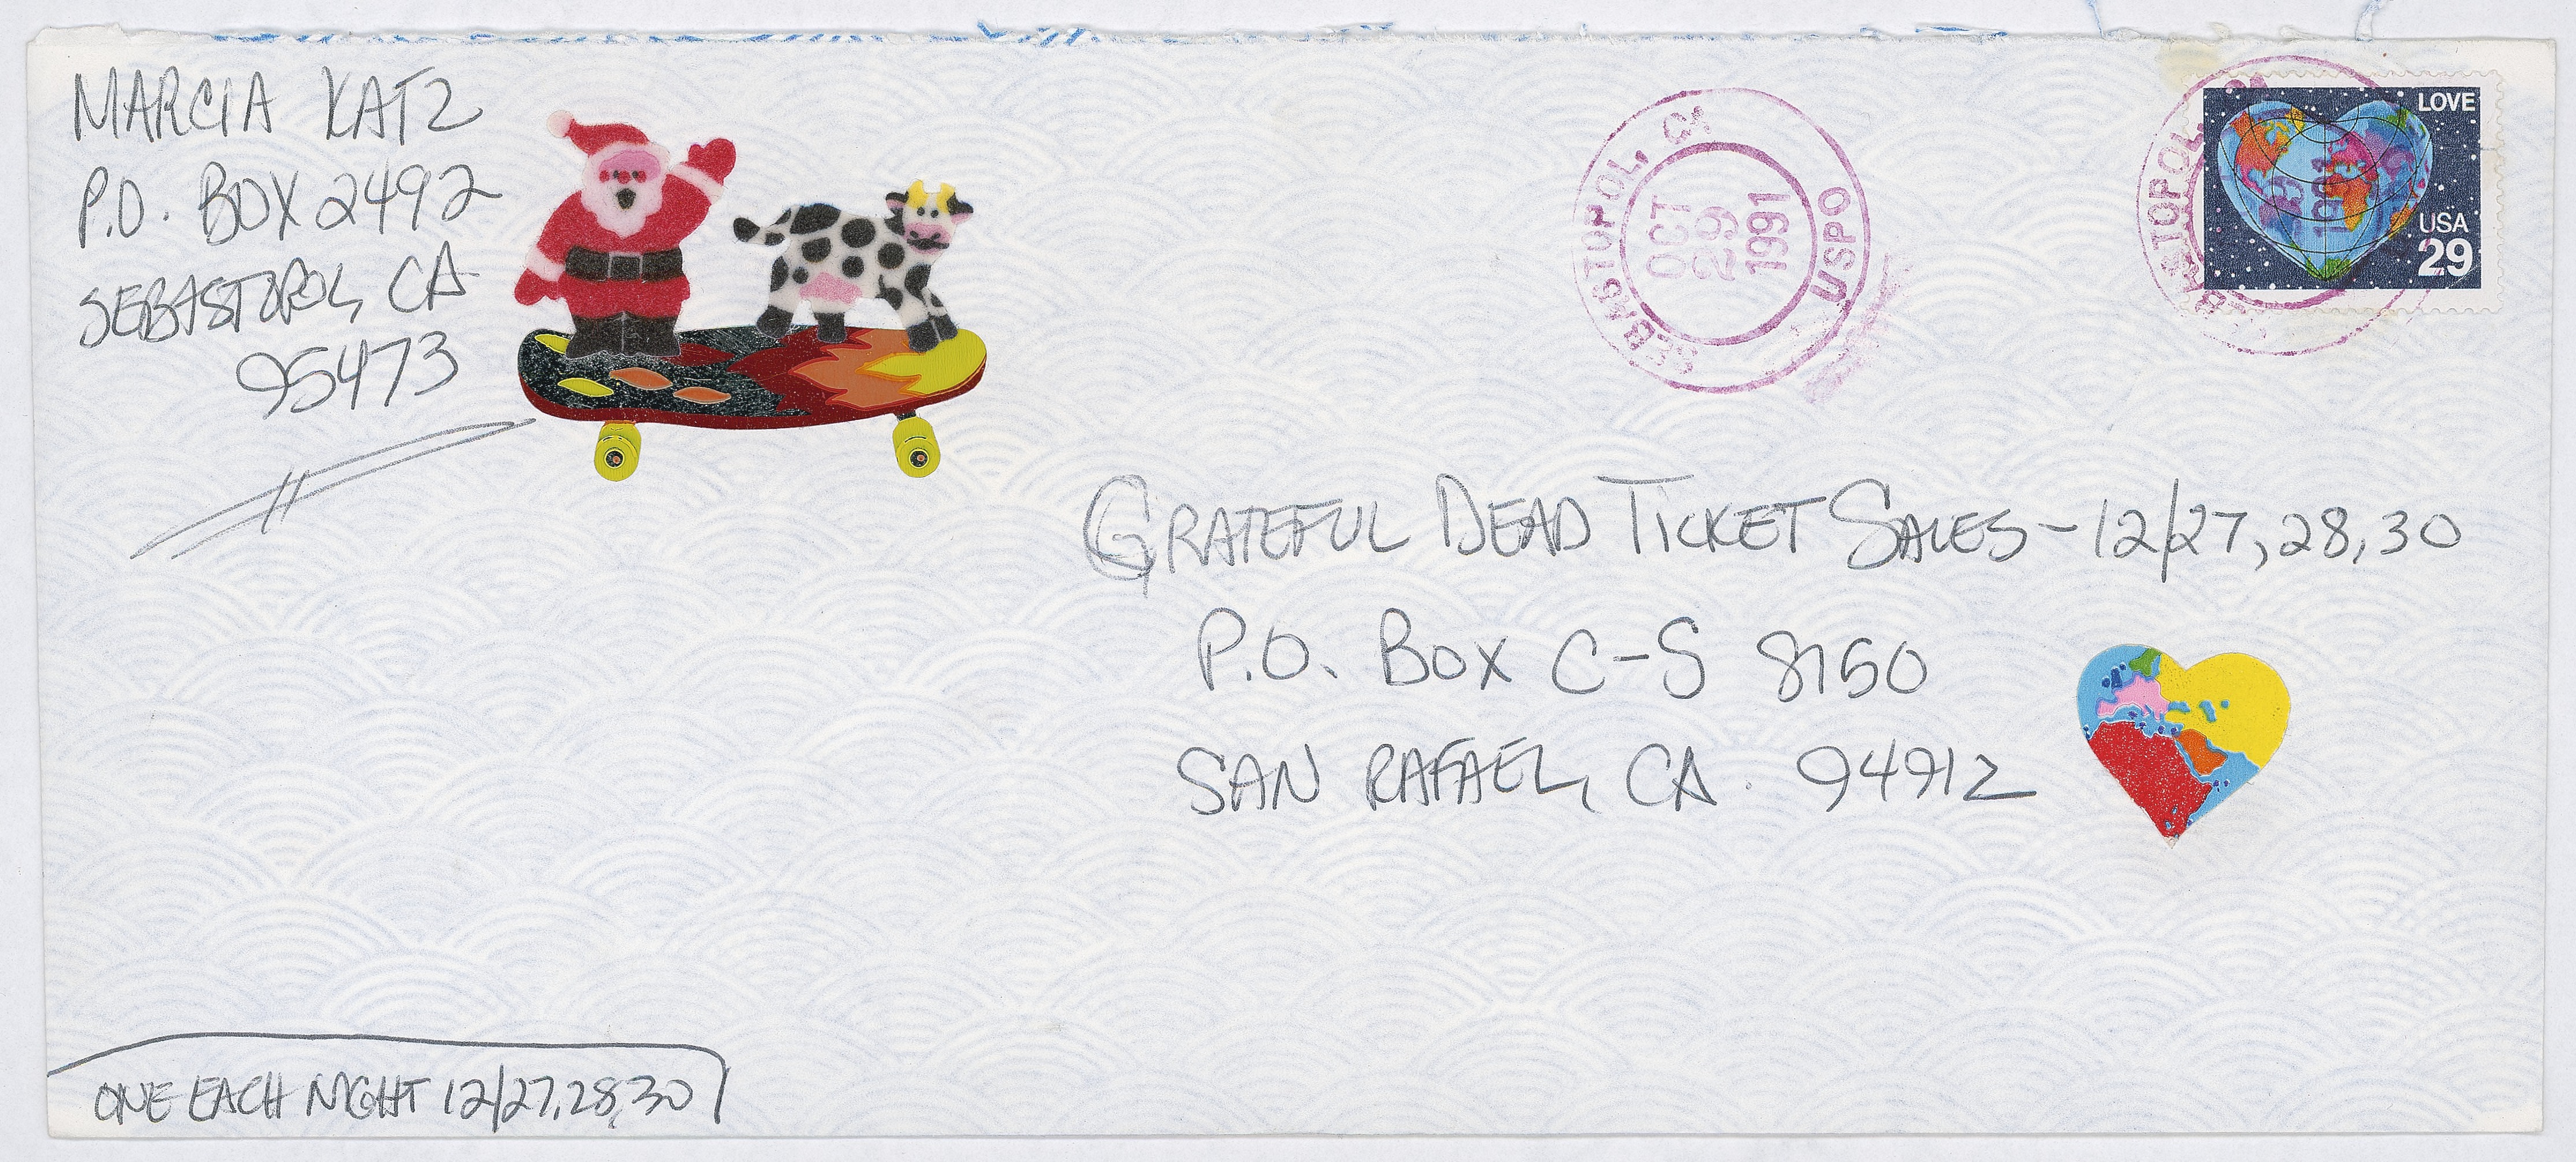 MARCIA KATZ
P.O. BOX 2492
SEBASTOPOL, CA
95473
SEBASTOPOL, CA
OCT
29
1991
USPO
LOVE
USA
29
SEBASTOPOL,
29
1991
GRATEFUL DEAD TICKET SALES - 12/27, 28, 30
P.O. BOX C-S 8150
SAN RAFAEL, CA. 94912
ONE EACH NIGHT 12/27, 28, 30